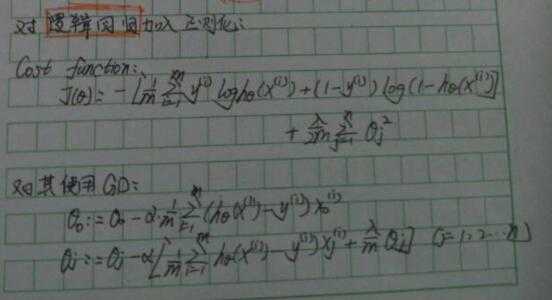 对逻辑回归加入正则化:
Cost function:
J(θ) = -[1/m Σ_{i=1}^{m} y^{(i)} log hθ(x^{(i)}) + (1-y^{(i)}) log(1-hθ(x^{(i)}))]
+ λ/2m Σ_{j=1}^{n} θj^2
对其使用GD:
θ0 := θ0 - α 1/m Σ_{i=1}^{m} (hθ(x^{(i)}) - y^{(i)}) x0^{(i)}
θj := θj - α[1/m Σ_{i=1}^{m} hθ(x^{(i)}) - y^{(i)}) xj^{(i)} + λ/m θj] (j=1,2…n)